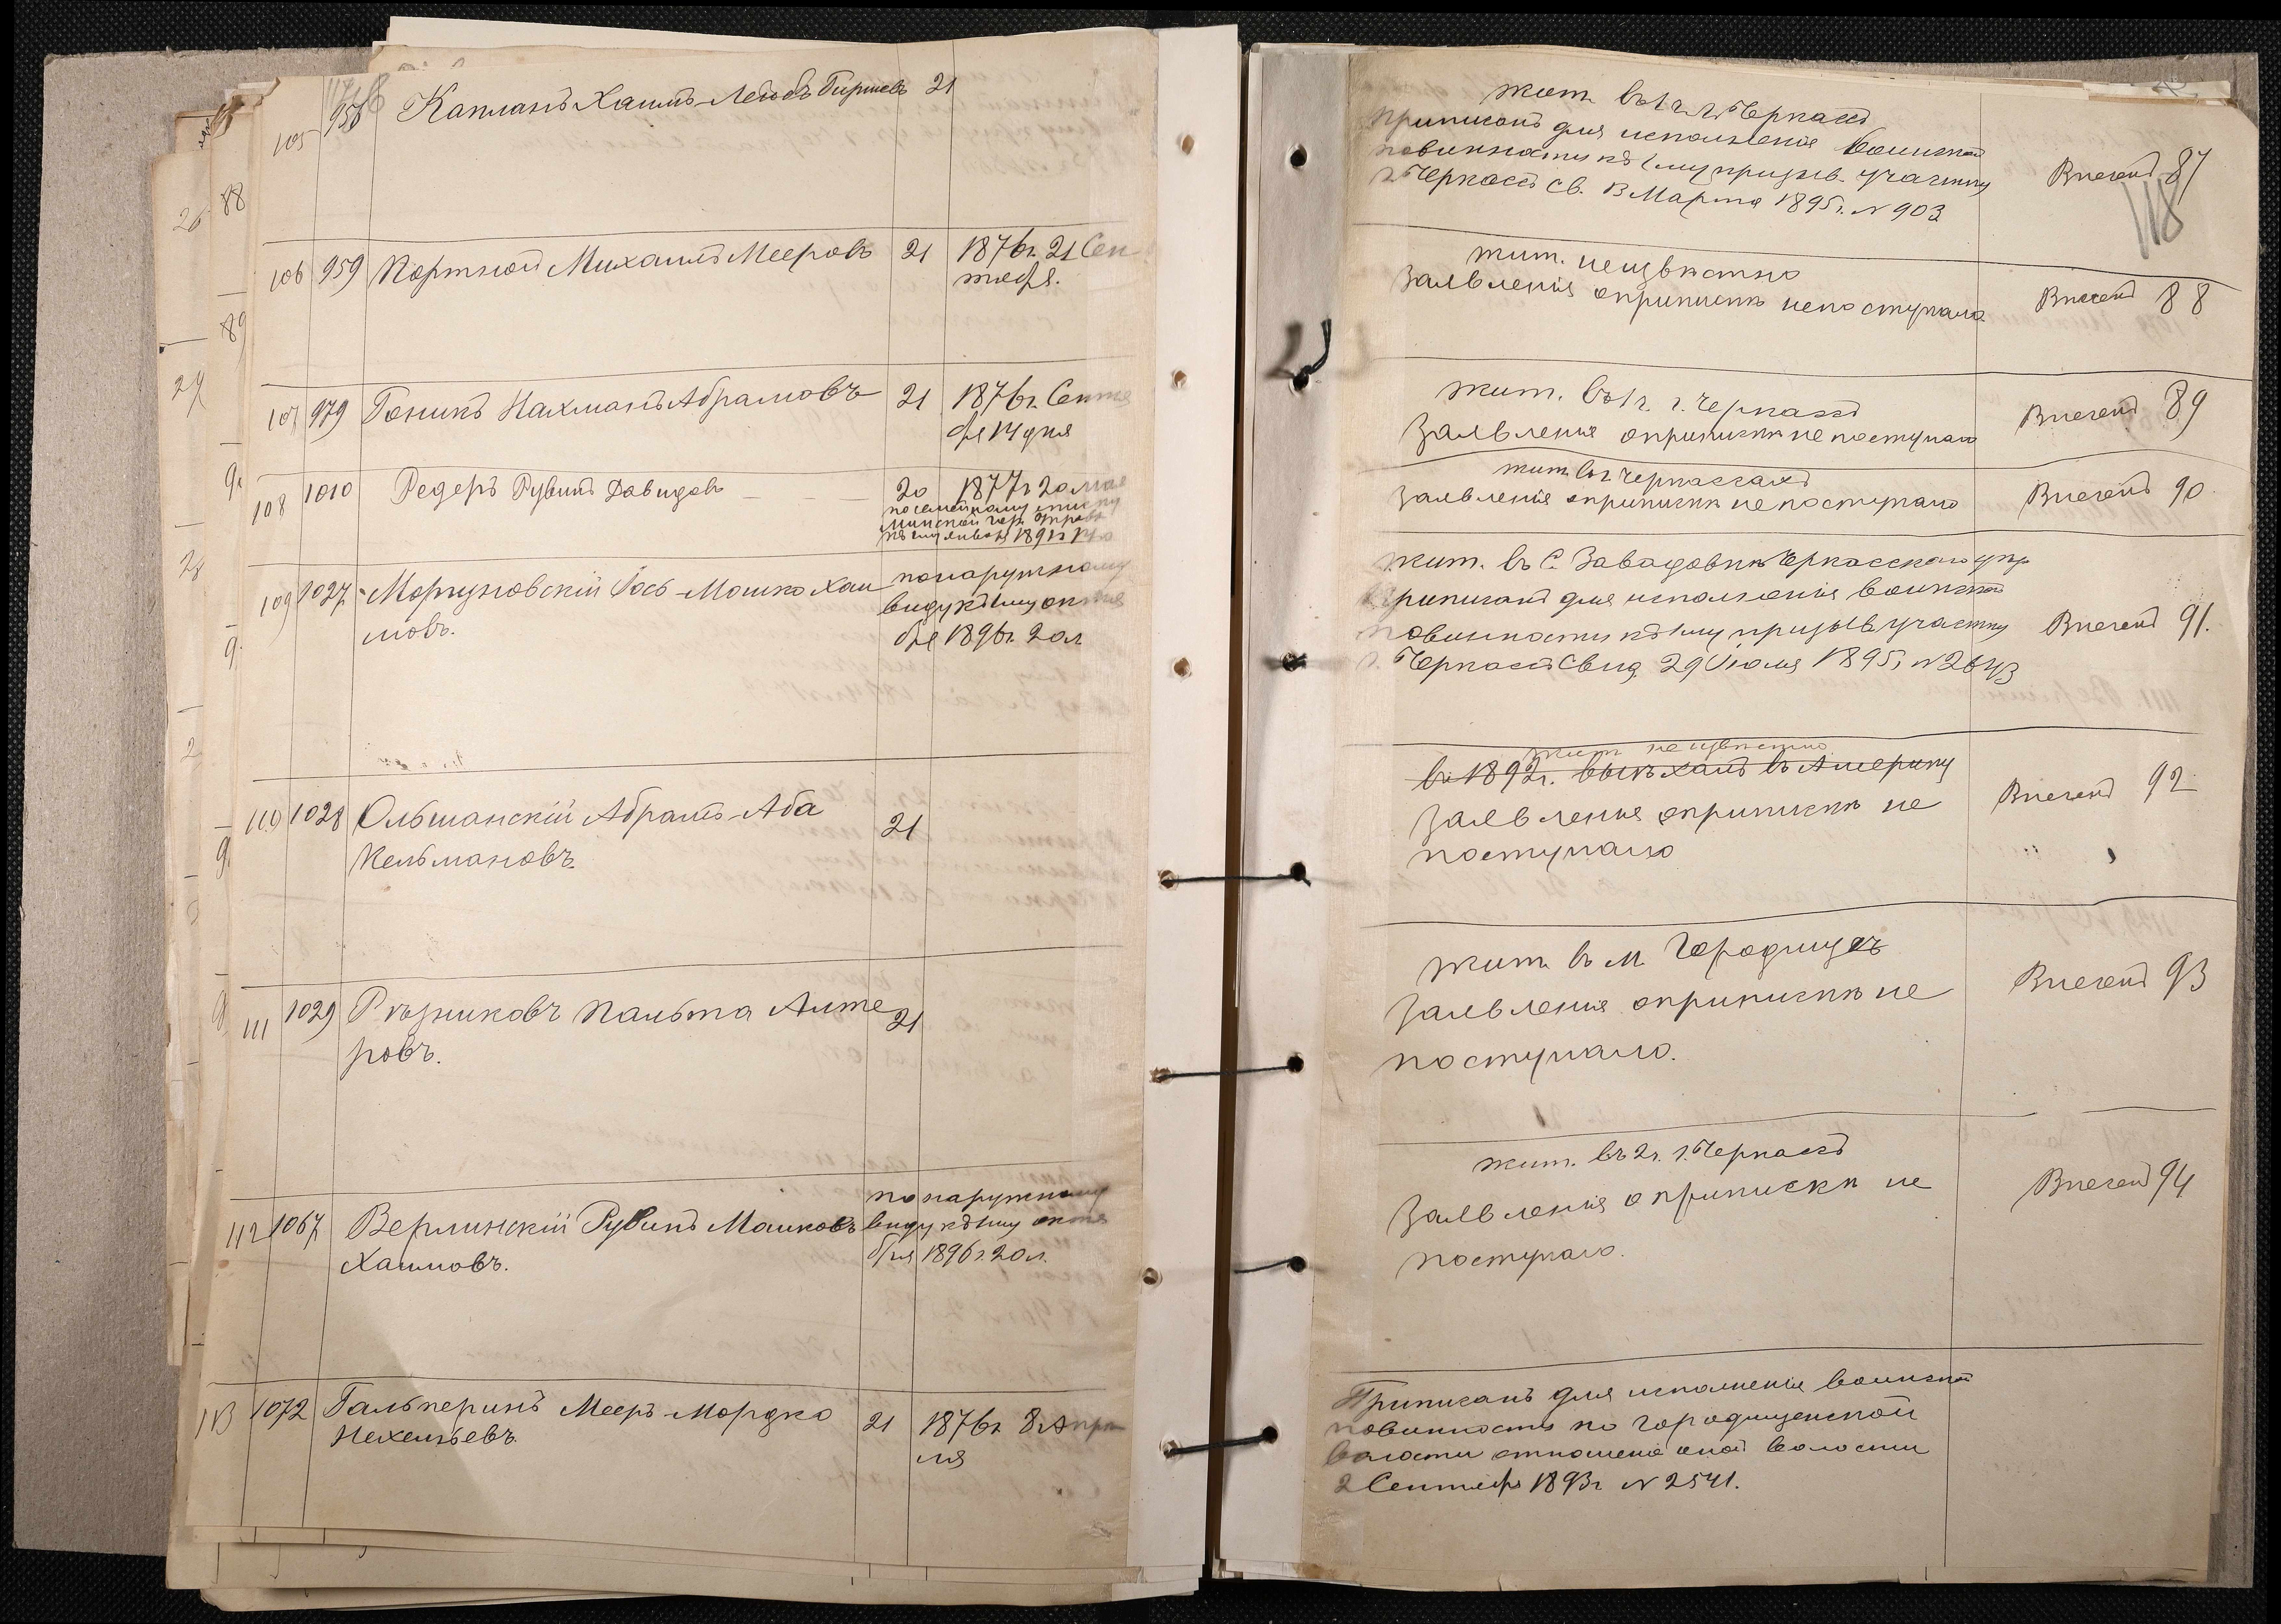 105 958 Капланъ Хаимъ-Лейбъ Гиршевъ 21
106 959 Портной Михаилъ Мееровъ 21 1876г. 21 Сен
тября.
107 979 Гоникъ Нахманъ Абрамовъ 21 1876г. Сентя
бря 14 дня
108 1010 Редеръ Рувинъ Давидовъ 20 1877г 20 мая
по семейному списку
109 1027 Моргуновскій Іось-Мошко Хаи по наружному
мовъ. виду къ 1му октя
бря 1896г. 20 л
110 1028 Ольшанскій Абрамъ-Аба 21
Кельмановъ.
111 1029 Рѣзниковъ Пальта Алте 21
ровъ.
112 1067 Верлинскій Рувинъ Машковъ по наружному
Хаимовъ. виду къ 1му октя
бря 1896г. 20 л.
113 1072 Гальперинъ Мееръ-Мордко 21 1876г. 8 Апрѣ
Нехемьевъ. ля
118
жит. въ 1ч. г. Черкассъ
приписанъ для исполненія воинской
повинности къ 1му призыв. участку
г. Черкассъ св. 13 Марта 1895г. № 903
Внесенъ 87
жит. неизвѣстно
Заявленія о припискѣ не поступало
Внесенъ 88
жит. въ 1ч. г. Черкассъ
Заявленія о припискѣ не поступало
Внесенъ 89
жит. въ г. Черкассахъ
Заявленія о припискѣ не поступало
Внесенъ 90
жит. въ С. Завадовкѣ Черкасскаго
приписанъ для исполненія воинской
повинности къ 1му призыв участку
г. Черкассъ Свид. 29 Іюля 1895г №
Внесенъ 91.
жит. неизвѣстно
въ 1892г. выѣхалъ въ Америку
Заявленія о припискѣ не
поступало
Внесенъ 92
жит. въ м. Городищѣ
Заявленія о припискѣ не
поступало.
Внесенъ 93
жит. въ 2ч. г. Черкассъ
Заявленія о припискѣ не
поступало.
Внесенъ 94
Приписанъ для исполненія воинской
повинности по Городищенской
волости отношеніе оной волости
2 Сентября 1893г № 2541.